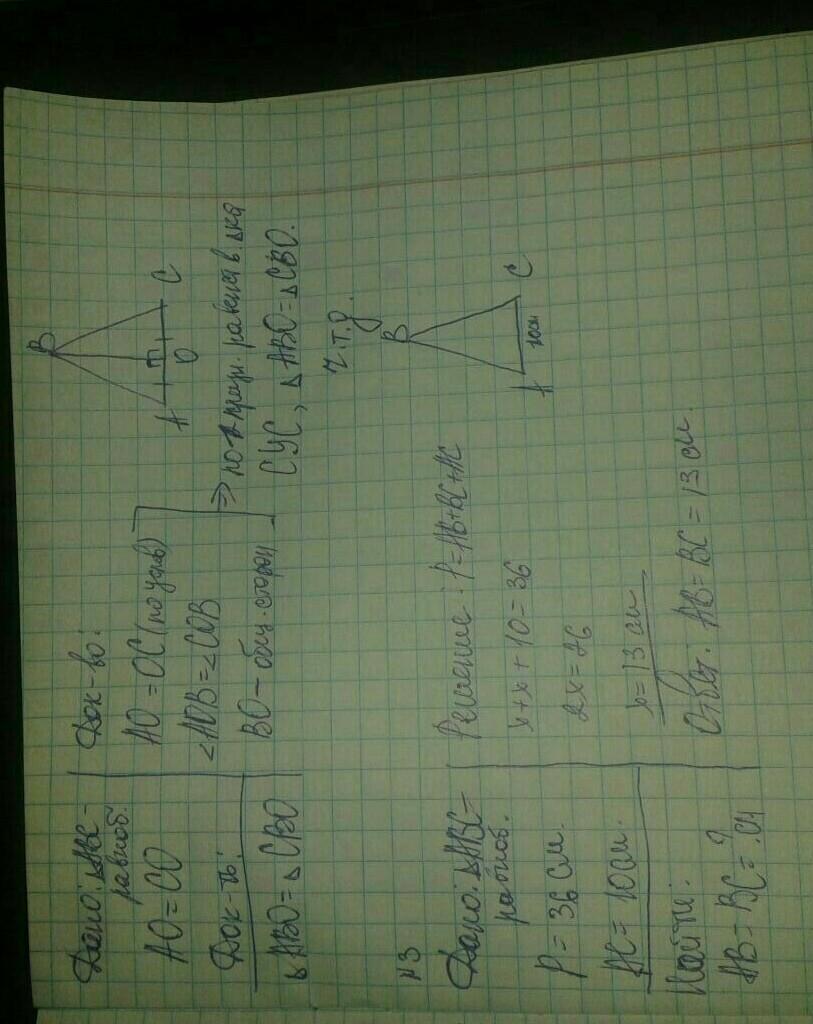 Дано: △ABC –
равноб.
AO = CO
Док-ть:
△ABO = △CBO
Док-во:
AO = OC (по услов)
∠AOB = ∠COB
BO – общ. сторон
⇒ по 1 призн. равенств. △ка
СУС, △ABO = △CBO.
ч.т.д.
B
A
O
C
N3
Дано: △ABC =
равноб.
P = 36 см.
AC = 10 см.
Найти:
AB = BC = ? см
Решение: P = AB + BC + AC
x + x + 10 = 36
2x = 26
x = 13 см
Ответ: AB = BC = 13 см.
B
A
10см
C